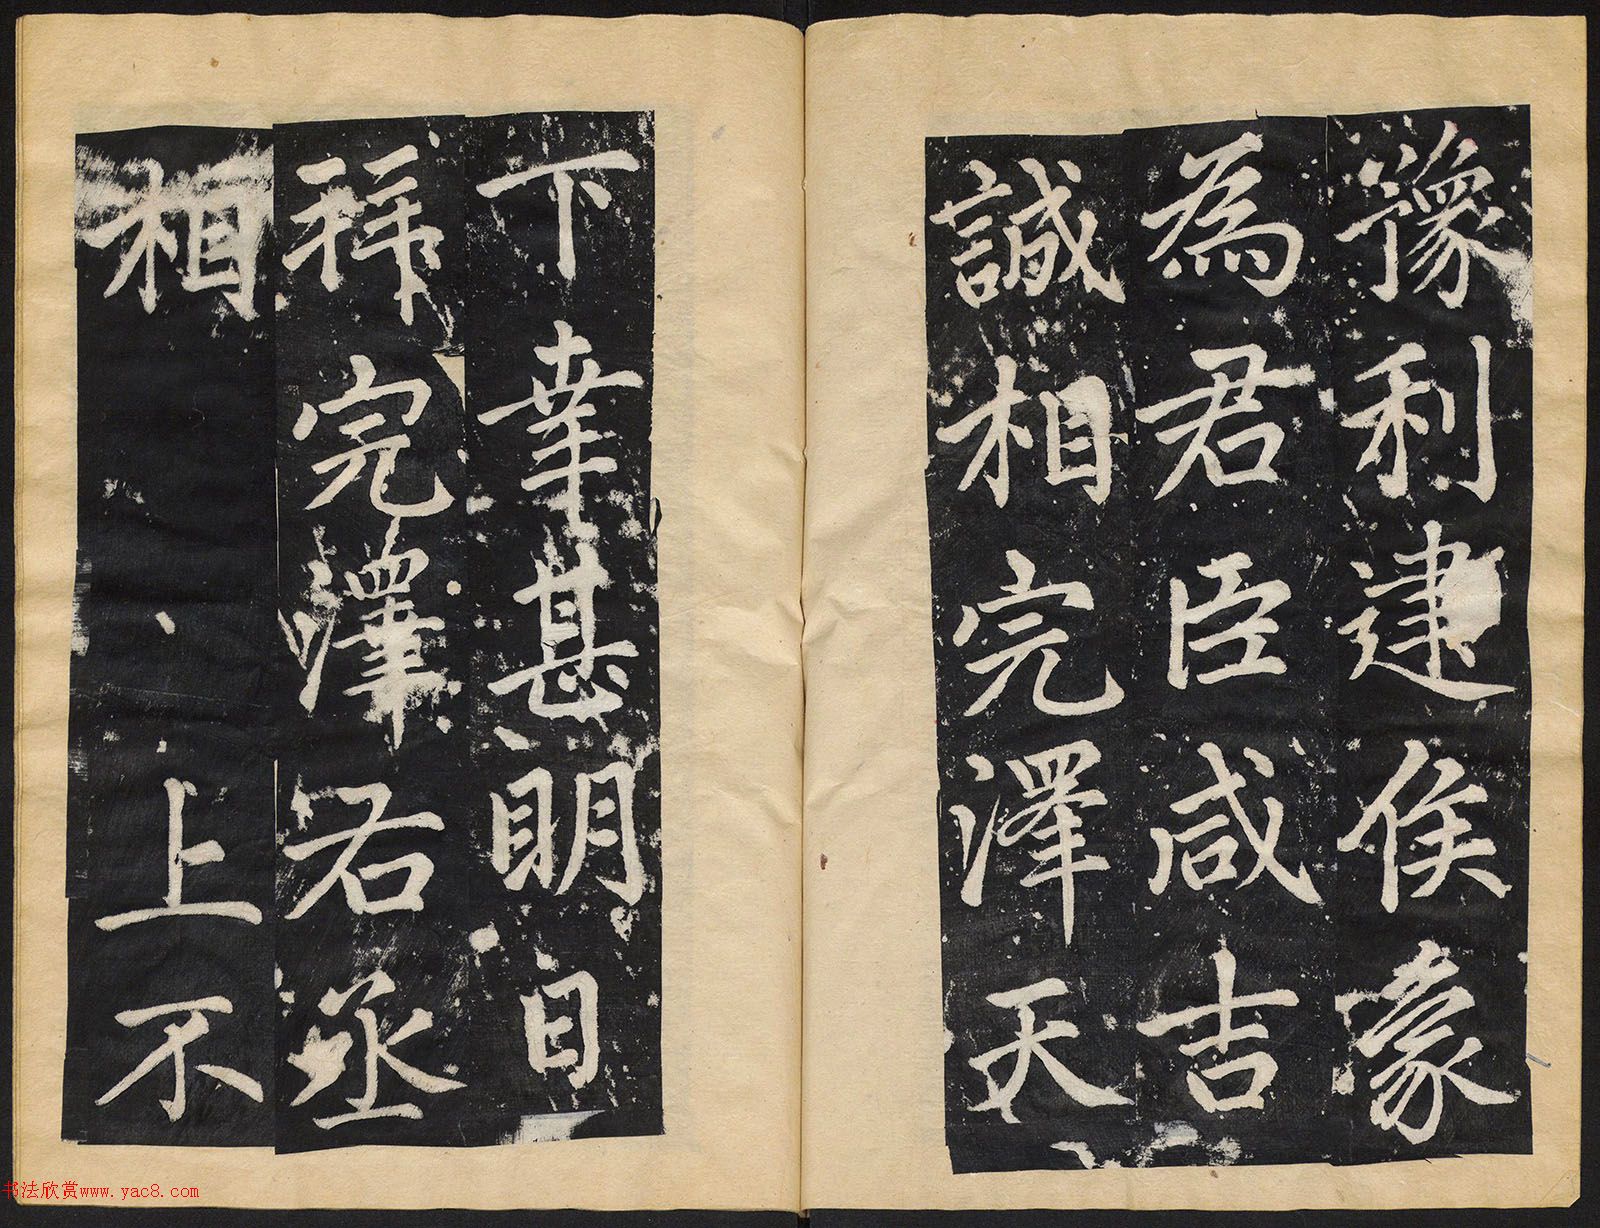 豫利建侯象
為君臣咸吉
誠相完澤天
下幸甚明日
拜完澤右丞
相上不
书法欣赏www.yac8.com